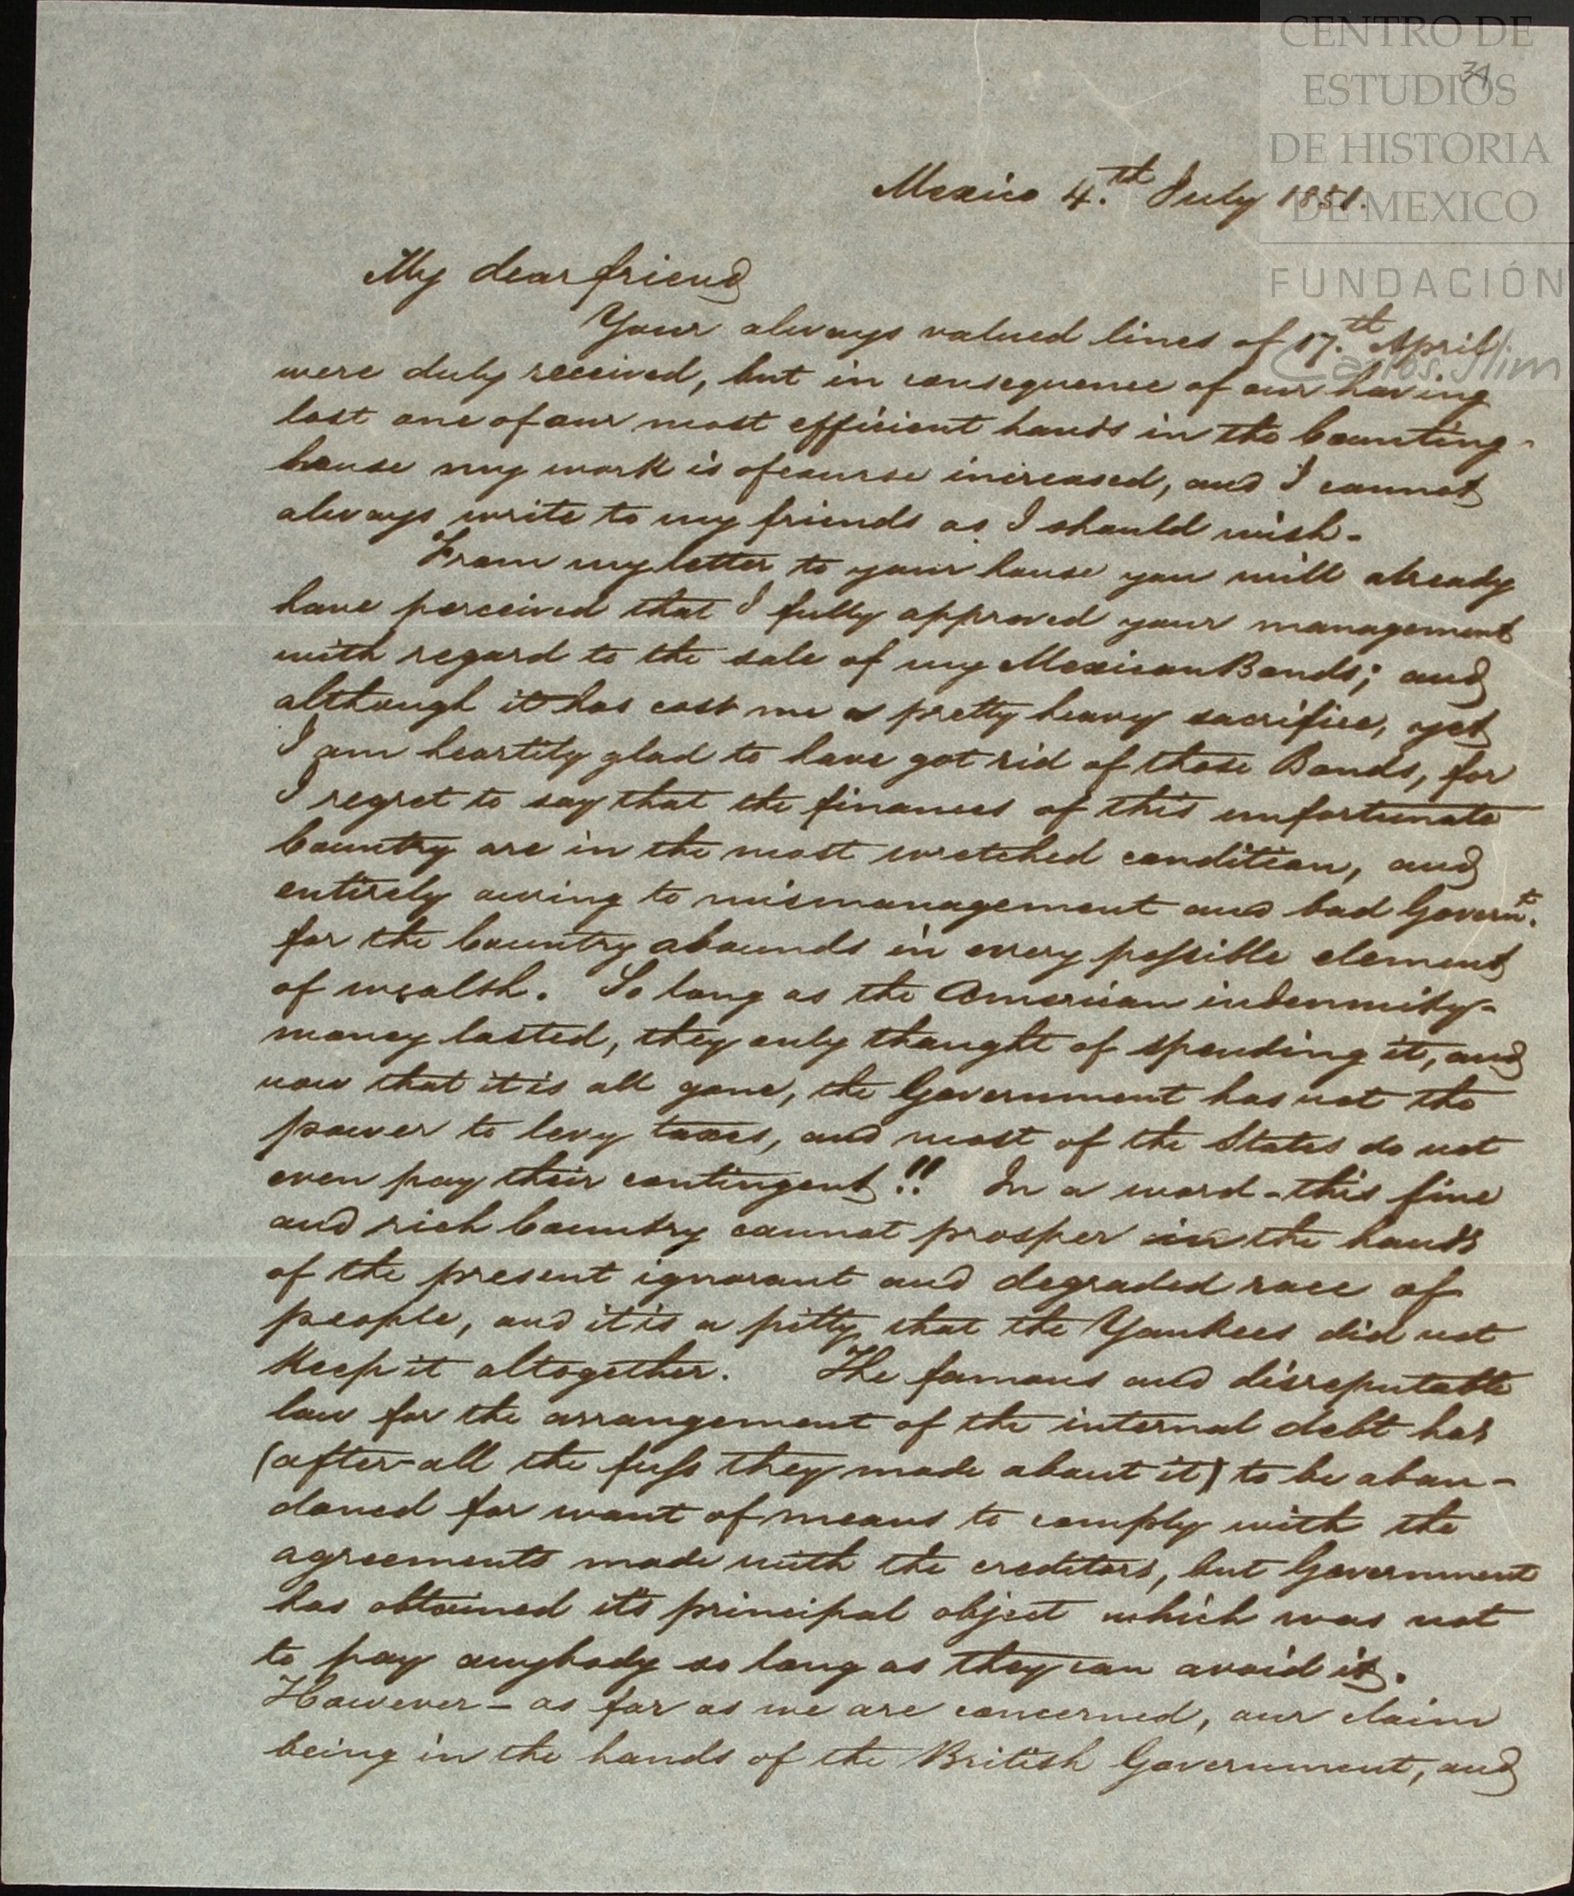 CENTRO DE
ESTUDIOS
DE HISTORIA
DE MEXICO
FUNDACIÓN
Carlos Slim
31
Mexico 4.th July 1851.
My dear friend
Your always valued lines of 17.th April
were duly received, but in consequence of our having
lost one of our most efficient hands in the Counting-
house my work is ofcourse increased, and I cannot
always write to my friends as I should wish-
From my letter to your house you will already
have perceived that I fully approved your management
with regard to the sale of my Mexican Bonds; and
although it has cost me a pretty heavy sacrifice, yet
I am heartily glad to have got rid of those Bonds, for
I regret to say that the finances of this unfortunate
Country are in the most wretched condition, and
entirely owing to mismanagement and bad Governt.
for the Country abounds in every possible element
of wealth. So long as the American indemnity-
money lasted, they only thought of spending it, and
now that it is all gone, the Government has not the
power to levy taxes, and most of the States do not
even pay their contingent!! In a word - this fine
and rich Country cannot prosper in the hands
of the present ignorant and degraded race of
people, and it is a pitty that the Yankees did not
keep it altogether. The famous and disreputable
law for the arrangement of the internal debt has
(after-all the fuss they made about it) to be aban-
doned for want of means to comply with the
agreements made with the creditors, but Government
has obtained it's principal object which was not
to pay anybody so long as they can avoid it.
However - as far as we are concerned, our claim
being in the hands of the British Government, and